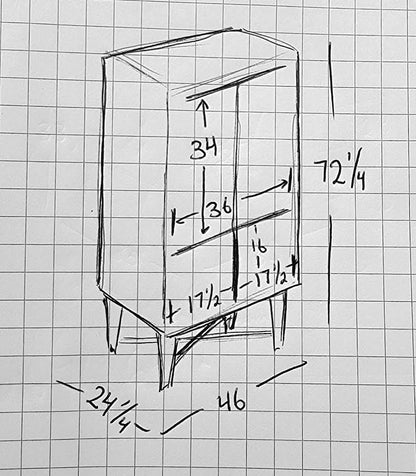 34
72 1/4
36
16
17 1/2
17 1/2
24 1/4
46